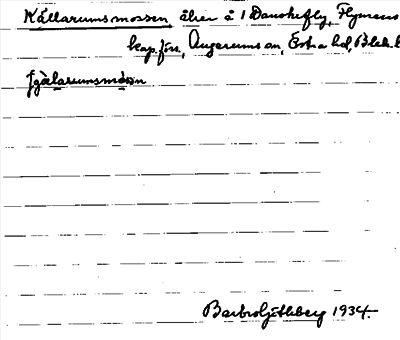 Källarumsmossen, åker å 1 Danskefly, Flymens
kap.förs, Augerums sn, Östra hd, Blek. l
fjälarumsmåsn
Barbro Ljethberg 1934.